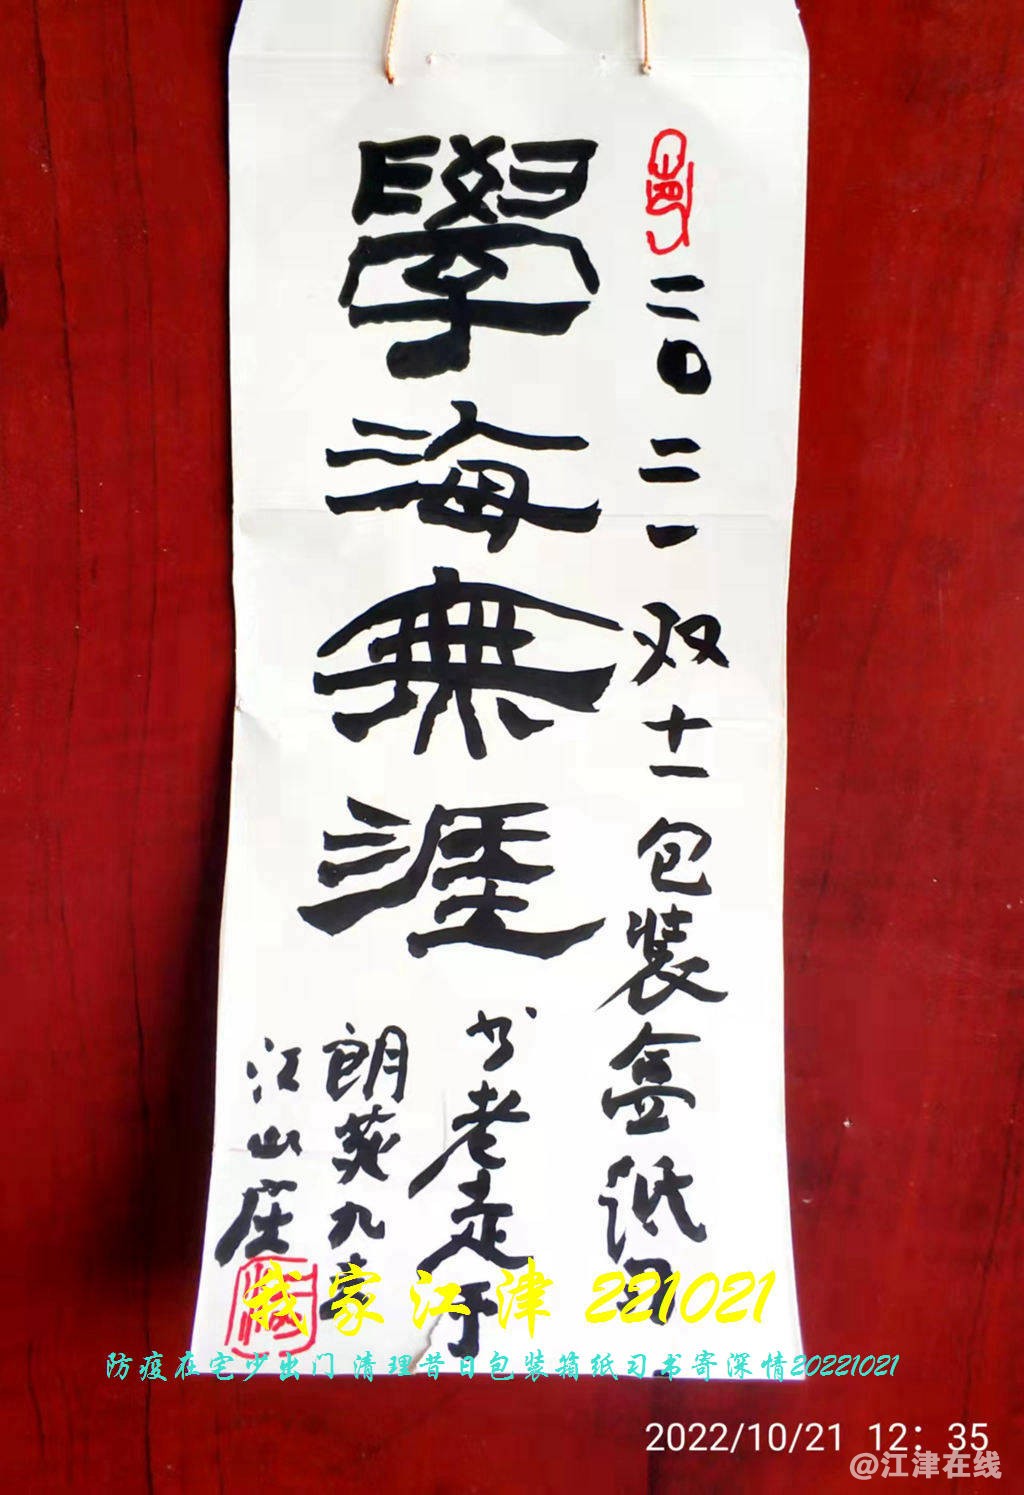 學海無涯
二〇二一双十一包装盒纸习
书老走于
朗英九
江山庄
我家江津 221021
防疫在宅少出门清理昔日包装箱纸习书寄深情20221021
2022/10/21 12：35
@江津在线